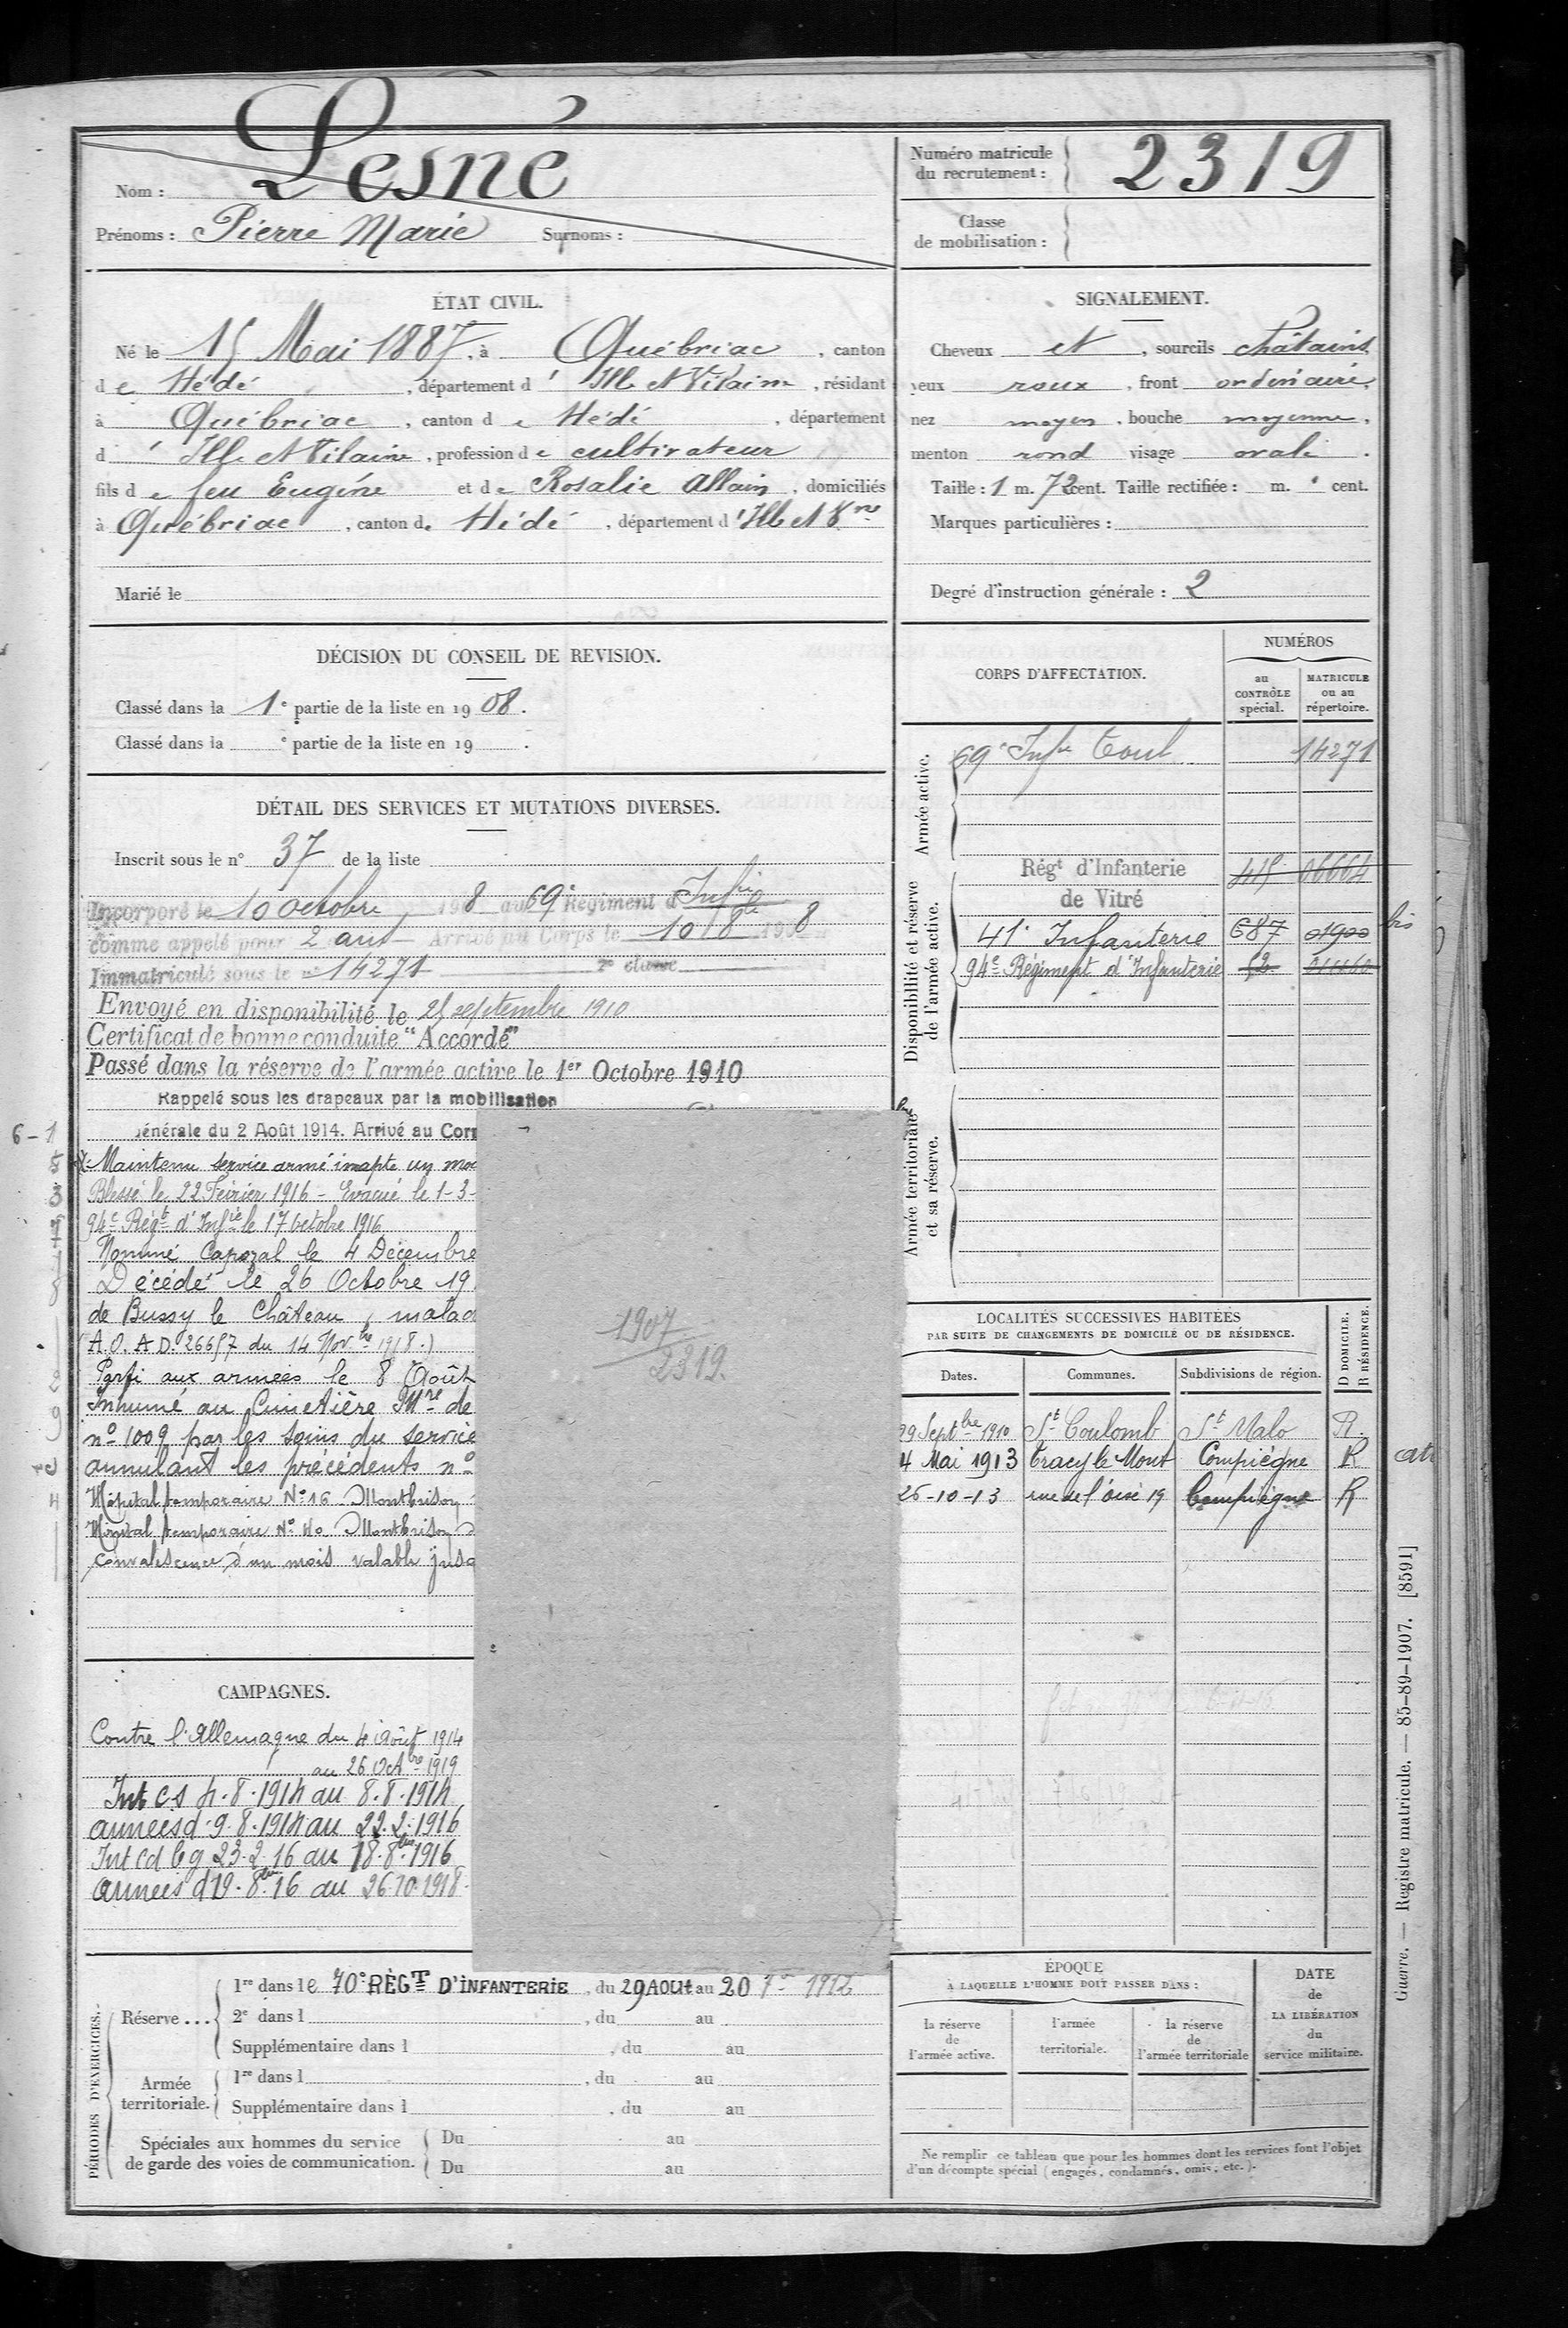 Nom : Lesné
Prénoms : Pierre Marie Surnoms :
Numéro matricule
du recrutement : 2319
Classe
de mobilisation :
ÉTAT CIVIL.
Né le 15 Mai 1887, à Québriac, canton
de Hédé, département d' Ille et Vilaine, résidant
à Québriac, canton de Hédé, département
d' Ille et Vilaine, profession de cultivateur
fils de feu Eugène et de Rosalie Allain, domiciliés
à Québriac, canton de Hédé, département d' Ille et Vne
Marié le
SIGNALEMENT.
Cheveux et, sourcils châtains
yeux roux, front ordinaire,
nez moyen, bouche moyenne,
menton rond visage ovale.
Taille : 1 m. 72 cent. Taille rectifiée : m. cent.
Marques particulières :
Degré d'instruction générale : 2
DÉCISION DU CONSEIL DE REVISION.
Classé dans la 1e partie de la liste en 1908.
Classé dans la e partie de la liste en 19 .
DÉTAIL DES SERVICES ET MUTATIONS DIVERSES.
Inscrit sous le n° 37 de la liste
Incorporé le 10 octobre 1908 au 69e Régiment d'Infrie
comme appelé pour 2 ans Arrivé au Corps le 10 8bre 1908
Immatriculé sous le n° 14271 2e classe
Envoyé en disponibilité le 25 septembre 1910
Certificat de bonne conduite "Accordé"
Passé dans la réserve de l'armée active le 1er Octobre 1910
Rappelé sous les drapeaux par la mobilisation
générale du 2 Août 1914. Arrivé au Cor
Maintenu service armé inapte un mo
Blessé le 22 Février 1916 - Evacué le 1-3-
94e Régt d'Infie le 17 octobre 1916
Nommé Caporal le 4 Décembre
Décédé le 26 Octobre 19
de Bussy le Château, malad
(A.O. A D. 26657 du 14 Novbre 1918.)
Parti aux armées le 8 Août
Inhumé au Cimetière Mre de
n° 1009 par les soins du service
annulant les précédents n°
Hôpital temporaire N° 16 Montbrison
Hôpital temporaire N° 40 Montbrison
convalescence d'un mois valable jusq
1907
2319.
CAMPAGNES.
Contre l'Allemagne du 4 Août 1914
au 26 Octbre 1919
Int cs 4.8.1914 au 8.8.1914
armées d 9.8.1914 au 22.2.1916
Int cd bg 23.2.16 au 18.8bre 1916
armées d 19.8bre 16 au 26.10.1918
CORPS D'AFFECTATION.
NUMÉROS
au
CONTRÔLE
spécial.
MATRICULE
ou au
répertoire.
Armée active.
69e Infie Toul 14271
Disponibilité et réserve
de l'armée active.
Régt d'Infanterie 415 06664
de Vitré
41e Infanterie 687 01900 bis
94e Régiment d'Infanterie 52
Armée territoriale
et sa réserve.
LOCALITÉS SUCCESSIVES HABITÉES
PAR SUITE DE CHANGEMENTS DE DOMICILE OU DE RÉSIDENCE.
Dates. Communes. Subdivisions de région. D DOMICILE. R RÉSIDENCE.
29 Septbre 1910 St Coulomb St Malo R.
4 Mai 1913 Tracy le Mont Compiègne R
26-10-13 rue de l'oise 19 Compiègne R
PÉRIODES D'EXERCICES.
Réserve ...
1re dans le 70e RÉGT D'INFANTERIE, du 29 AOUT au 20 7bre 1912
2e dans l , du au
Supplémentaire dans l , du au
Armée
territoriale.
1re dans l , du au
Supplémentaire dans l , du au
Spéciales aux hommes du service
de garde des voies de communication.
Du au
Du au
ÉPOQUE
À LAQUELLE L'HOMME DOIT PASSER DANS :
la réserve
de
l'armée active.
l'armée
territoriale.
la réserve
de
l'armée territoriale
DATE
de
LA LIBÉRATION
du
service militaire.
Ne remplir ce tableau que pour les hommes dont les services font l'objet
d'un décompte spécial (engagés, condamnés, omis, etc.).
Guerre. — Registre matricule. — 85-89-1907. [8591]